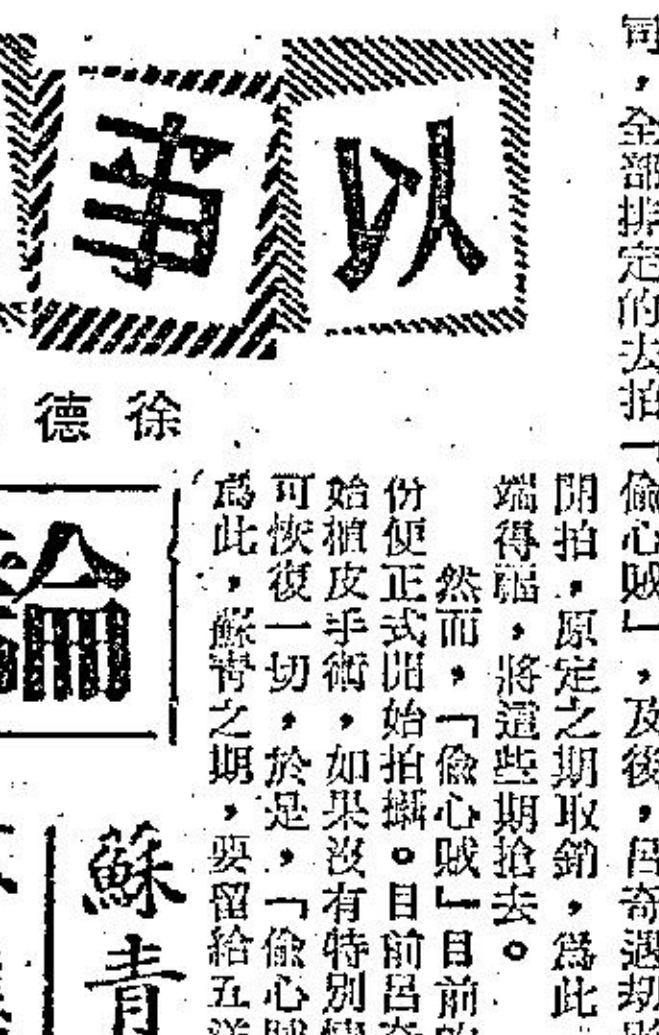 以事
徐德
司，全部排定的去拍「偷心賊」，及後，呂奇遇刼
開拍，原定之期取銷，爲此
端得福，將這些期搶去。
然而，「偷心賊」目前
份便正式開始拍攝。目前呂奇
始植皮手術，如果沒有特別
可恢復一切，於是，「偷心賊
爲此，蘇青之期，要留給五
論
蘇青